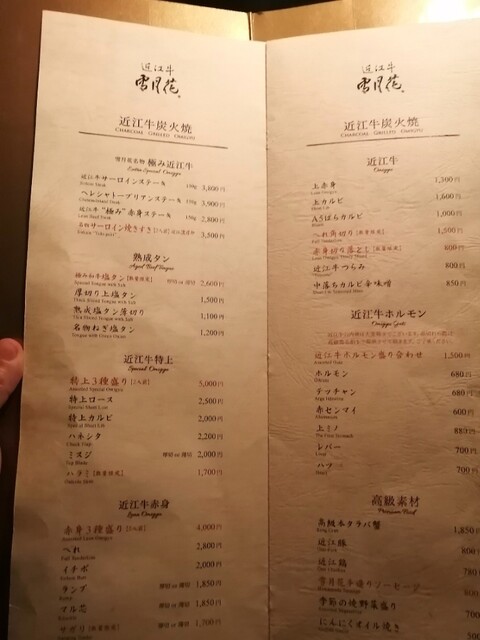 近江牛
雪月花
近江牛炭火焼
CHARCOAL GRILLED OMIGYU
雪月花名物 極み近江牛
Extra Special Omigyu
近江牛サーロインステーキ 150g 3,800円
Sirloin Steak
ヘレシャトーブリアンステーキ 150g 3,900円
Chateaubriand Steak
近江牛"極み"赤身ステーキ 150g 2,800円
Lean Beef Steak
名物サーロイン焼きすき 3,500円
熟成タン
Aged Beef Tongue
極みねぎ塩タン【数量限定】 厚切 or 薄切 2,600円
厚切り上塩タン 1,500円
熟成塩タン薄切り 1,100円
名物ねぎ塩タン 1,200円
近江牛特上
Special Omigyu
特上3種盛り【2人前】 5,000円
特上ロース 2,500円
特上カルビ 2,000円
ハネシタ 2,200円
ミスジ 厚切 or 薄切 2,000円
ハラミ【数量限定】 1,700円
近江牛赤身
Lean Omigyu
赤身3種盛り【2人前】 4,000円
へれ 2,800円
イチボ 2,000円
ランプ 厚切 or 薄切 1,850円
マル芯 厚切 or 薄切 1,850円
サガリ【数量限定】 厚切 or 薄切
近江牛
雪月花
近江牛炭火焼
CHARCOAL GRILLED OMIGYU
近江牛
Omigyu
上赤身 1,300円
上カルビ 1,600円
A5ばらカルビ 1,000円
へれ角切り【数量限定】 1,500円
赤身切り落とし【数量限定】 800円
近江牛つらみ 800円
中落ちカルビ辛味噌 850円
近江牛ホルモン
Omigyu Guts
近江牛ホルモン盛り合わせ 1,500円
ホルモン 680円
テッチャン 680円
赤センマイ 600円
上ミノ
レバー 700円
ハツ 700円
高級素材
Premium Beef
高級本タラバ蟹 1,850円
近江豚 800
近江鶏 780
雪月花手造りソーセージ
季節の焼野菜盛り 700
にんにくオイル焼き